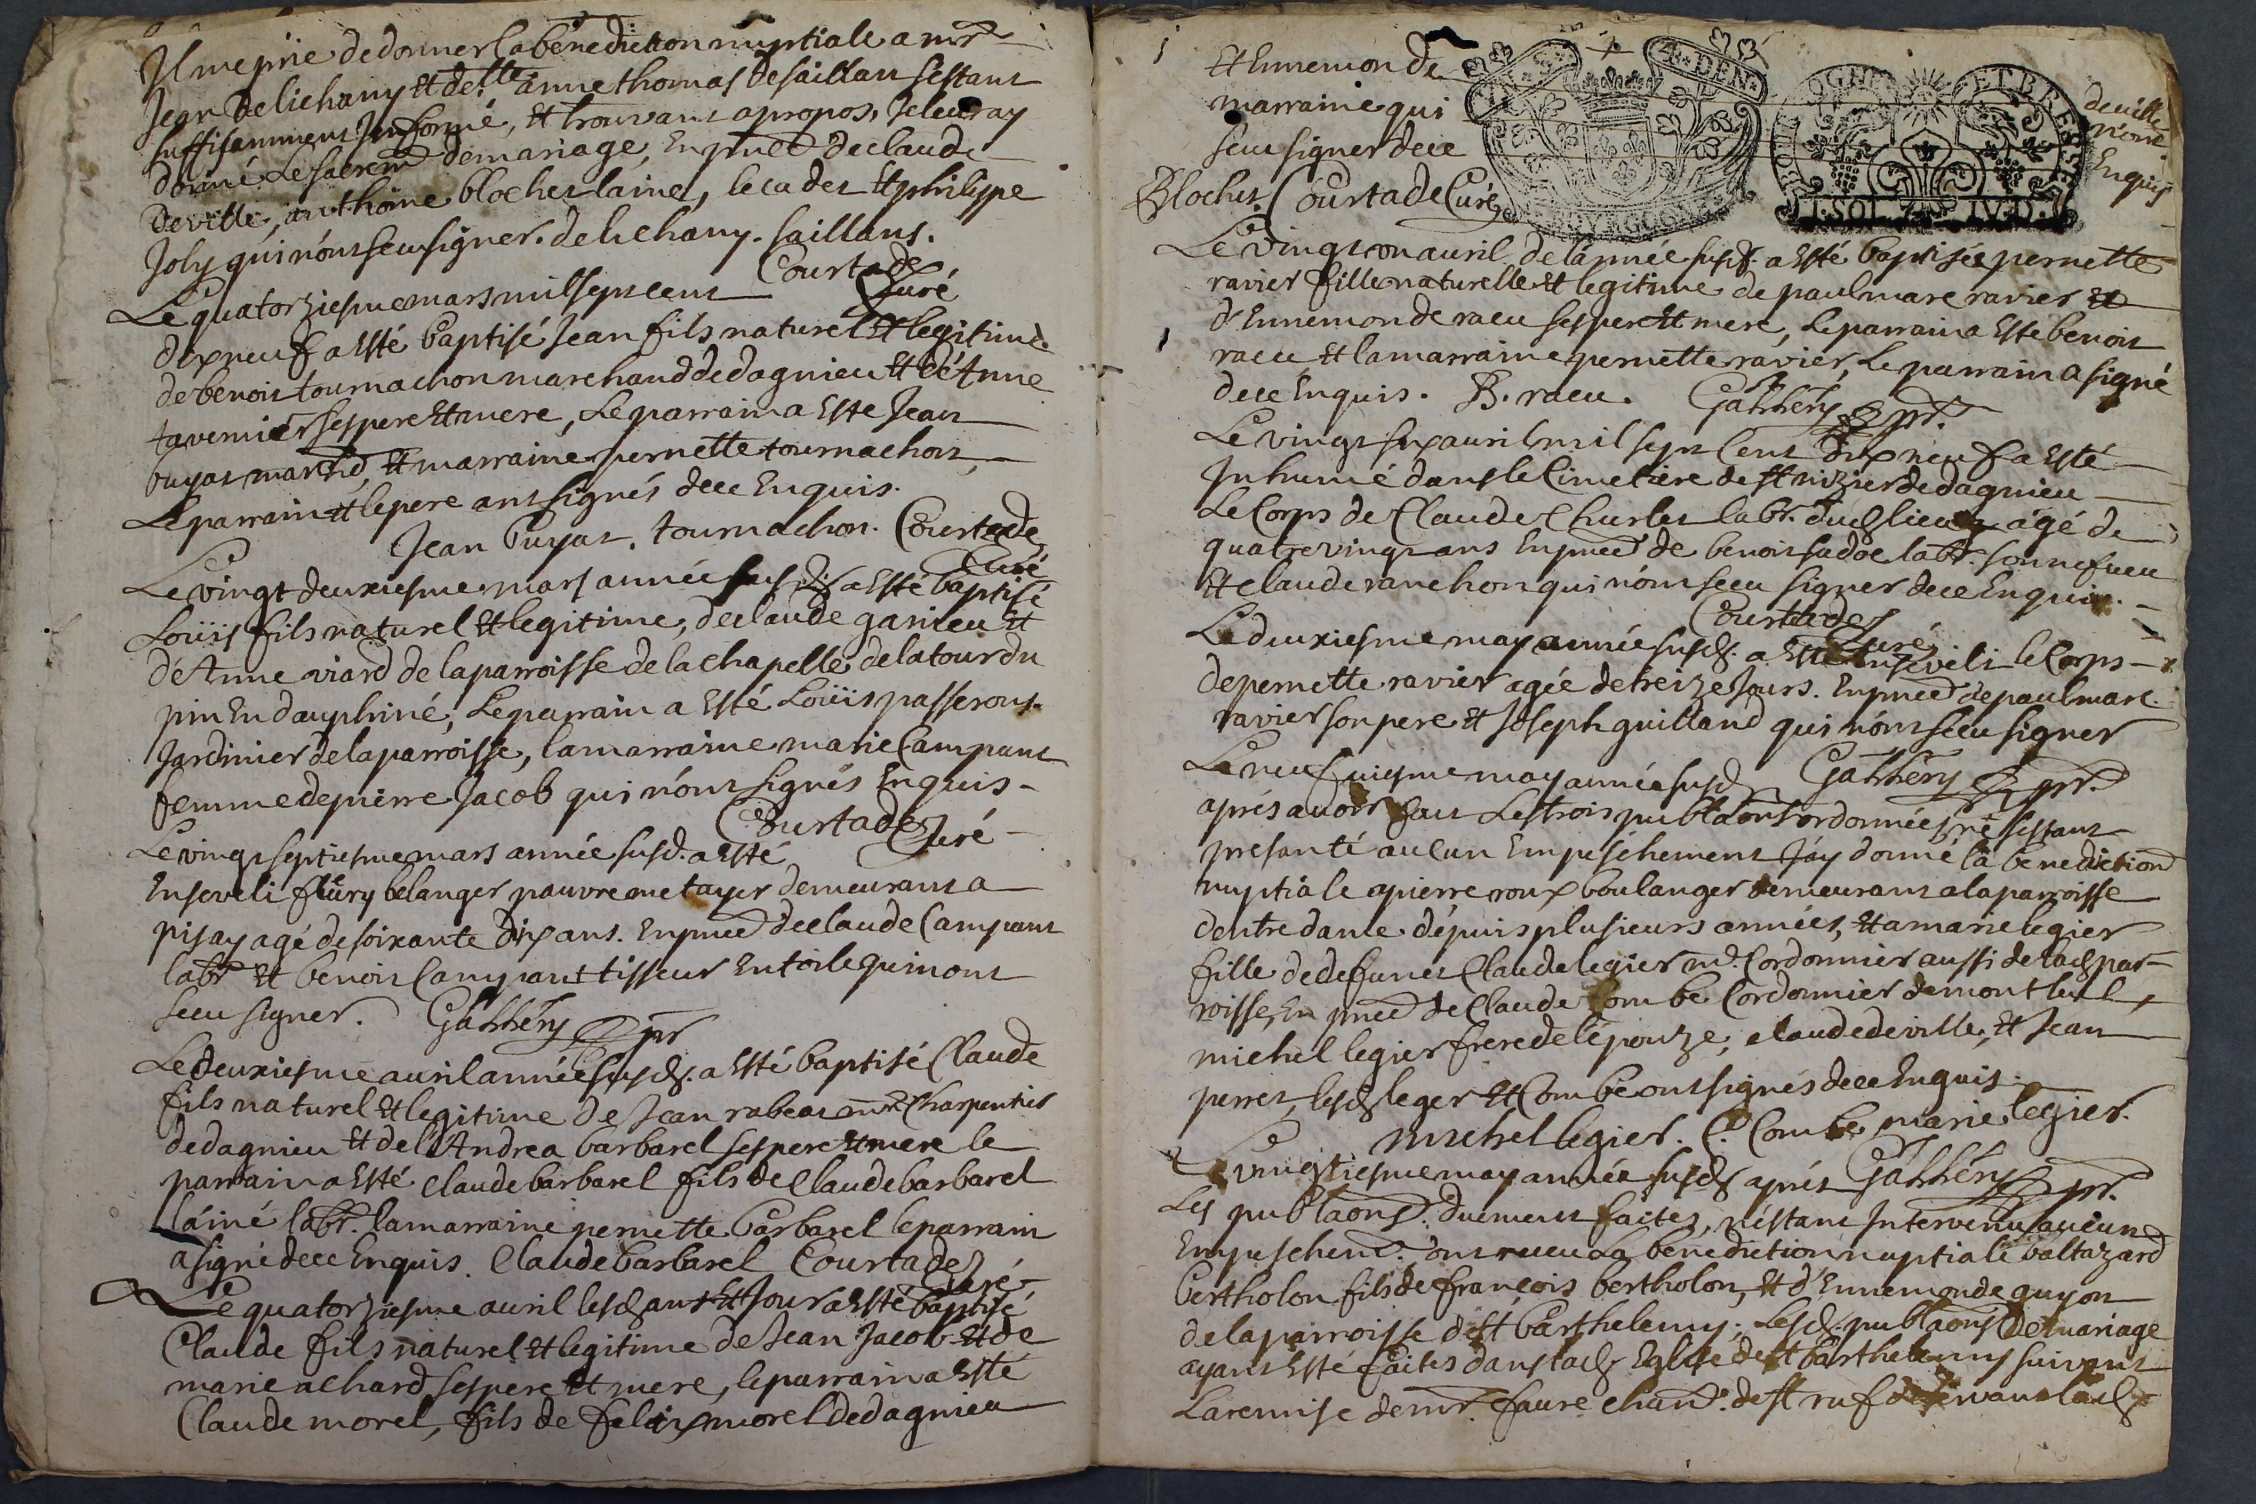 Il me prie de donner la benediction nuptiale a mr
Jean Delichany et delle anne thomas de saillan sestant
suffisemment Informé, et trouvant apropos, Je leur ay
donné Le sacremt de mariage, En pñce de claude
Deville, anthoine blochet laine, le cadet et philippe
Joly qui nónt sceu signer. delichany. saillans.
Courtade Curé
Le quatorziesme mars mil sept cent
dixneuf a esté baptisé Jean fils naturel et legitime
de benoit tournachon marchand de dagnieu et de Anne
tavernier ses pere et mere, Le parrain a Esté Jean
buyat marchd, et marraine pernette tournachon,
Le parrain et le pere ont signés de ce Enquis.
Jean buyat. tournachon. Courtade
Curé
Le vingt deuxiesme mars année susd. a Esté baptisé
Loüis fils naturel et legitime, de claude garieu et
d'Anne viard de la parroisse de la chapelle de la tour du
pin En dauphiné, Le parrain a Esté Loüis passerout
Jardinier de la parroisse, la marraine marie Campant
femme de pierre Jacob qui nónt signés Enquis
Courtade Curé
Le vingt septiesme mars année susd. a Esté
Enseveli fleury belanger pauvre metayer demeurant a
pisay agé de soixante dix ans. En pñce de claude Campant
labr et benoit Campant tisseur En toile qui nont
sceu signer. Gahhéry ptr
Le deuxiesme avril année susd. a Esté baptisé Claude
fils naturel et legitime de Jean rabeat mre Charpentier
de dagnieu et del Andrea barbarel ses pere et mere le
parrain a Esté claude barbarel fils de Claude barbarel
lâiné labr. la marraine pernette barbarel le parrain
a signé de ce Enquis. Claude barbarel Courtade
Curé
Le quatorziesme avril lesd. an et Jour a Esté baptisé
Claude fils naturel et legitime de Jean Jacob et de
marie achard ses pere et mere, le parrain a Esté
Claude morel, fils de felix morel de dagnieu
Et Ennemonde deville
marraine qui nont
sceu signer de ce Enquis
Blochet. Courtade Curé
BOURGOGNE ET BRESSE
I. SOL IV. D.
Le vingt con avril de lánnée susd. a Esté baptisée pernette
ravier fille naturelle et legitime de paul marc ravier et
d'Ennemonde racu ses pere et mere, Le parrain a Esté benoit
racu et la marraine pernette ravier, Le parrain a signé
de ce Enquis. B. racu. Gahhéry ptr.
Le vingt six avril mil sept Cent dix neuf a Esté
Inhumé dans le Cimetiere de st nizier de dagnieu
Le Corps de Claude Charlet labr. dud. lieu agé de
quatre vingt ans En pñce de benoit sadoc labr. son nefveu
et claude ranchon qui nónt sceu signer de ce Enquis.
Courtade Curé
Le deuxiesme may année susd. a Esté Enseveli le Corps
de pernette ravier agée de treize Jours. En pñce de paul marc
ravier son pere et Joseph guilland qui nónt sceu signer
Gahhéry ptr.
Le neufviesme may année susd.
aprés avoir fait Les trois publaons ordonnées, ne sestant
presanté aucun Empeschement Jáy donné la benediction
nuptiale a pierre roux boulanger demeurant a la parroisse
dentre dante dépuis plusieurs années, et a marie legier
fille de defunct Claude legier md. Cordonnier aussi de lad. par-
roisse, En pñce de Claude Combe Cordonnier de montluel,
michel legier frere de lépouze, claude deville, et Jean
perret, lesd. leger et Combe ont signés de ce Enquis.
michel legier. C. Combe marie legier.
Gahhéry ptr.
Le vingtiesme may année susd. aprés
Les publaons. duement faites, néstant Intervenu aucun
Empeschemt. ont receu La benediction nuptiale baltazard
bertholon fils de françois bertholon, et d'Ennemonde guyon
de la parroisse de st barthelemy, Lesd. publaons de mariage
ayant Esté faites dans lad. Eglise de st barthelemy suivant
La remise de mr. faure chane. de st ruf desservant lad.